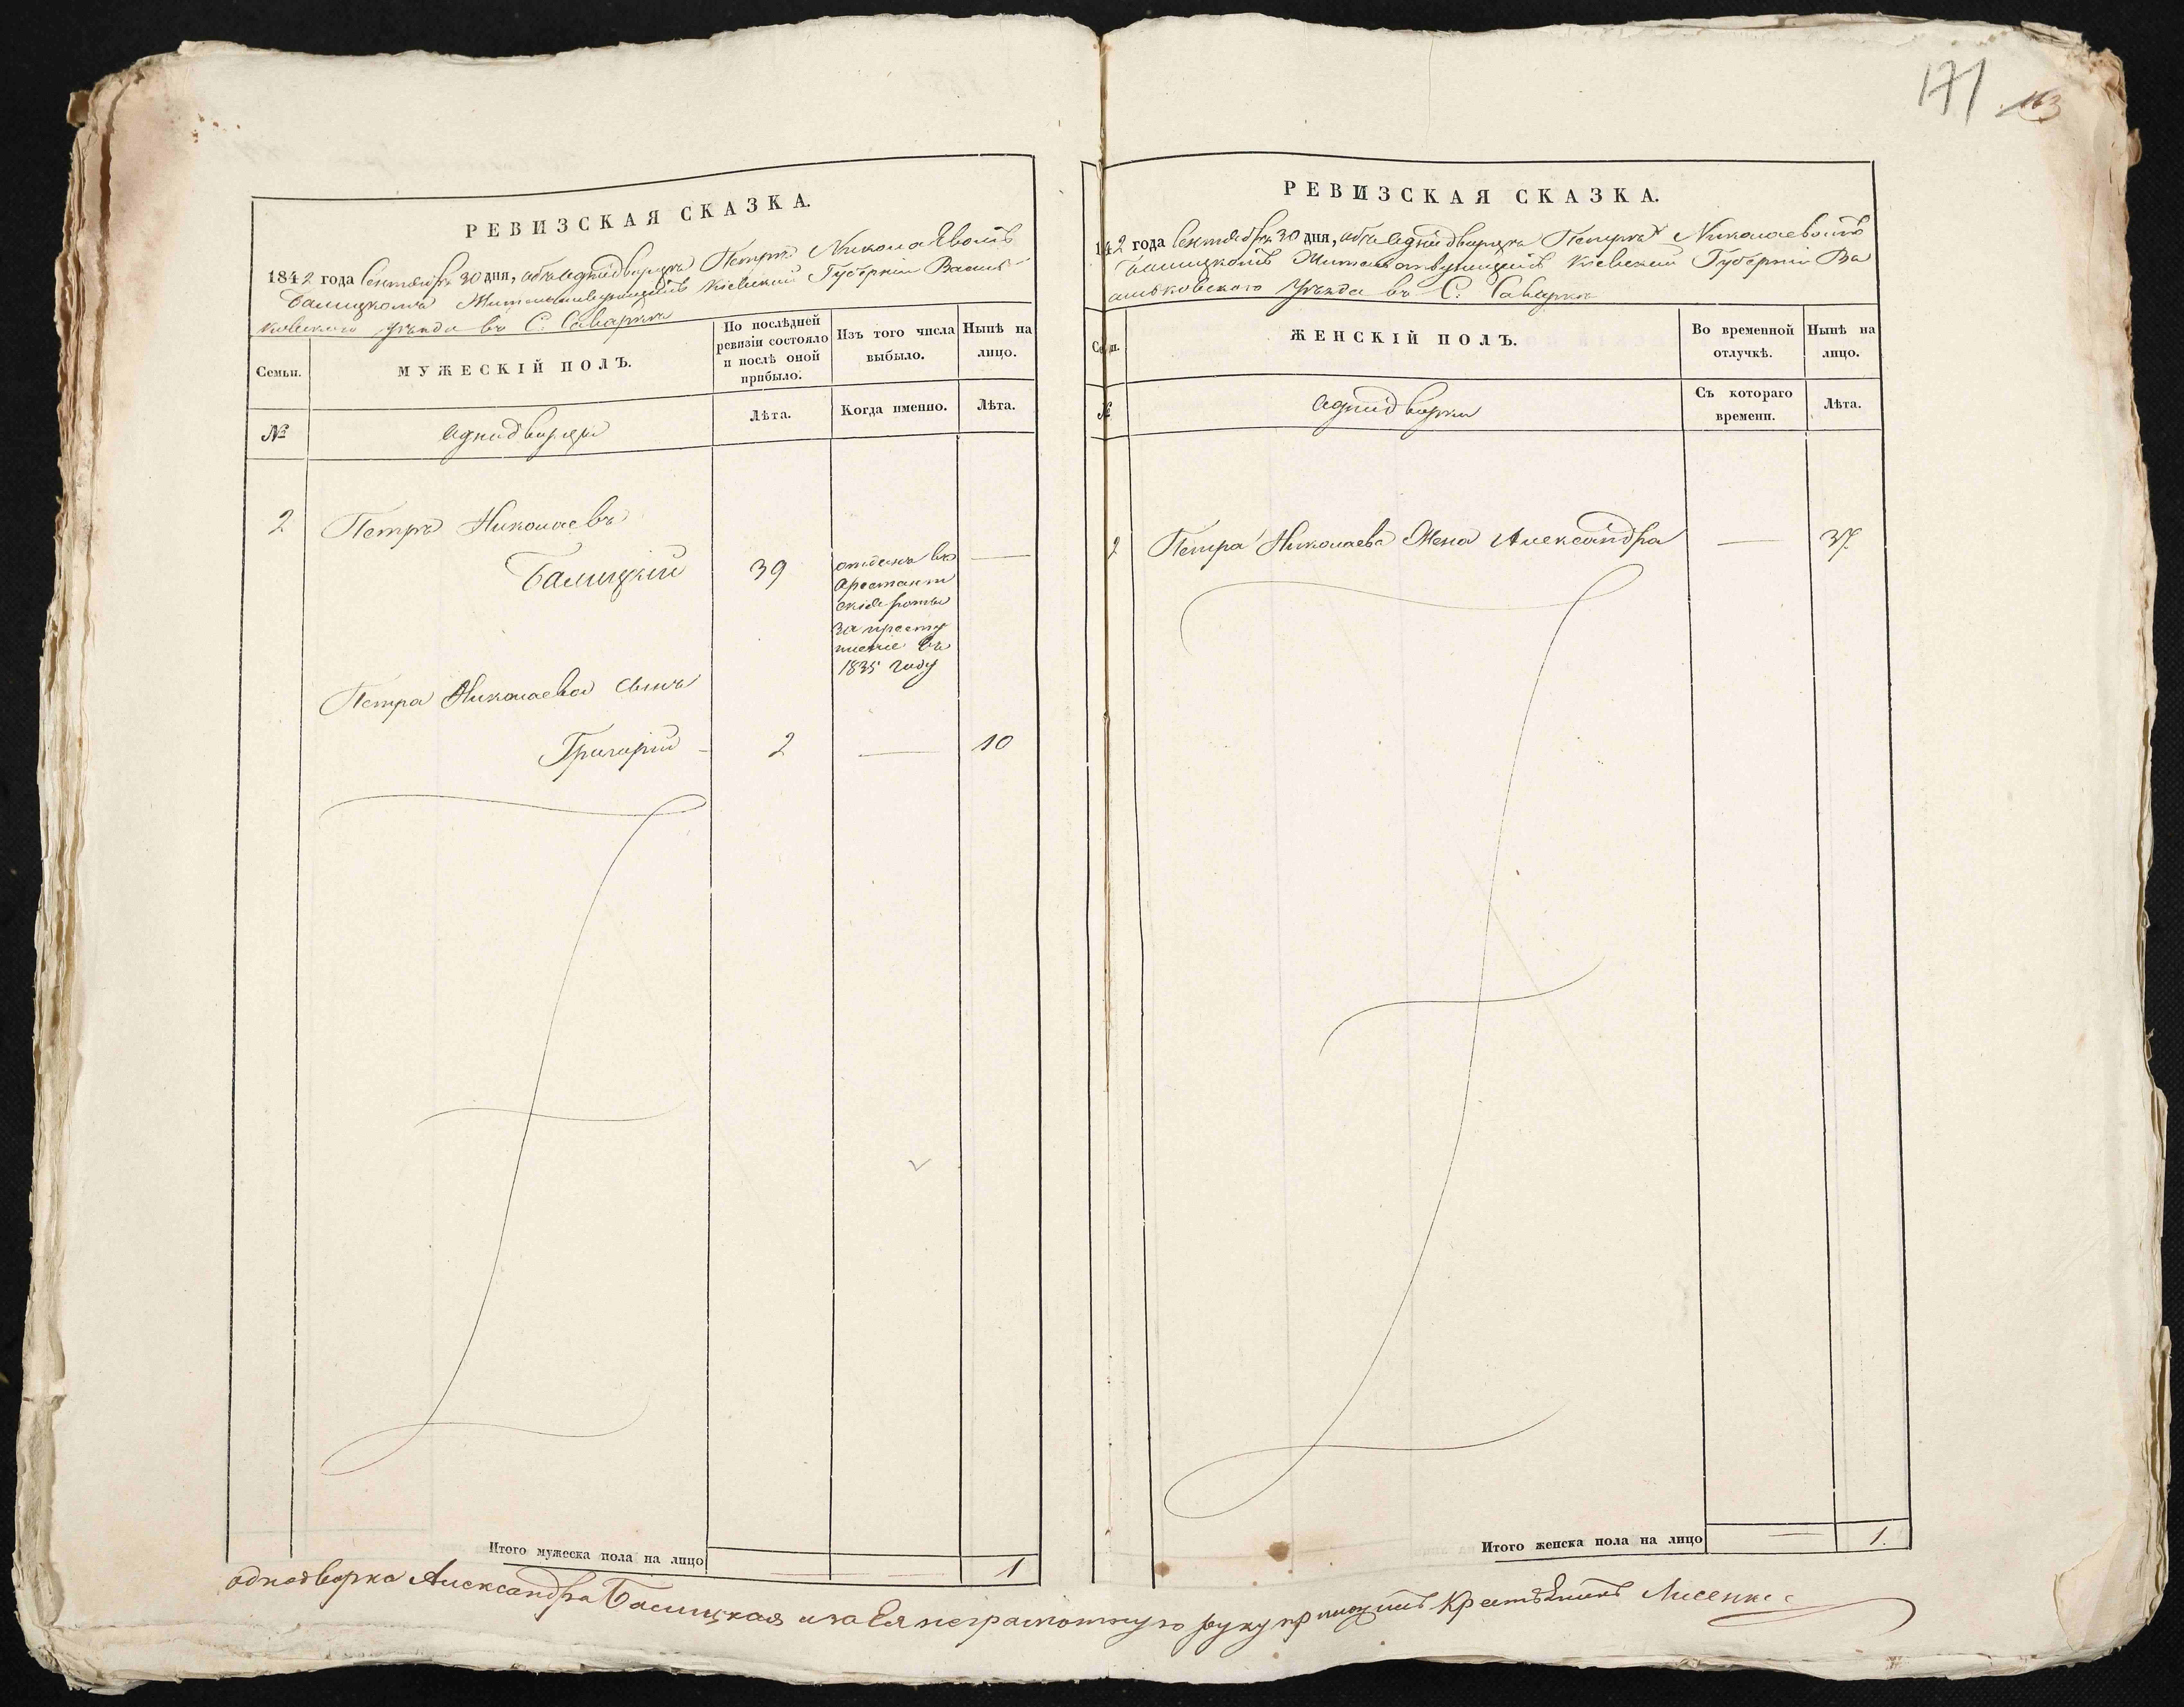 171 163
РЕВИЗСКАЯ СКАЗКА.
1842 года Сентября 30 дня, объ Однодворцѣ Петрѣ Николаевомъ
Балицкомъ Жительствующемъ Кіевской Губерніи Василь-
ковскаго уѣзда въ С: Саваркѣ
Семьи.
МУЖЕСКІЙ ПОЛЪ.
По послѣдней
ревизіи состояло
и послѣ оной
прибыло.
Изъ того числа
выбыло.
Нынѣ на
лицо.
№
Однодворцы
Лѣта.
Когда именно.
Лѣта.
2 Петръ Николаевъ
Балицкій 39 отданъ въ —
Арестант
скіе роты
за престу
пленіе въ
1835 году
Петра Николаева сынъ
Григорій - 2 — 10
Итого мужеска пола на лицо 1
РЕВИЗСКАЯ СКАЗКА.
142 года Сентября 30 дня, объ Однодворцѣ Петрѣ Николаевомъ
Балицкомъ Жительствующемъ Кіевской Губерніи Ва
сильковского уѣзда въ С: Саваркѣ
Семьи.
ЖЕНСКІЙ ПОЛЪ.
Во временной
отлучкѣ.
Нынѣ на
лицо.
№
Однодворки
Съ котораго
времени.
Лѣта.
2 Петра Николаева Жена Александра — 37
Итого женска пола на лицо — 1.
однодворка Александра Балицкая а за Ея неграмотную руку приложилъ Крестьянинъ Лисенко